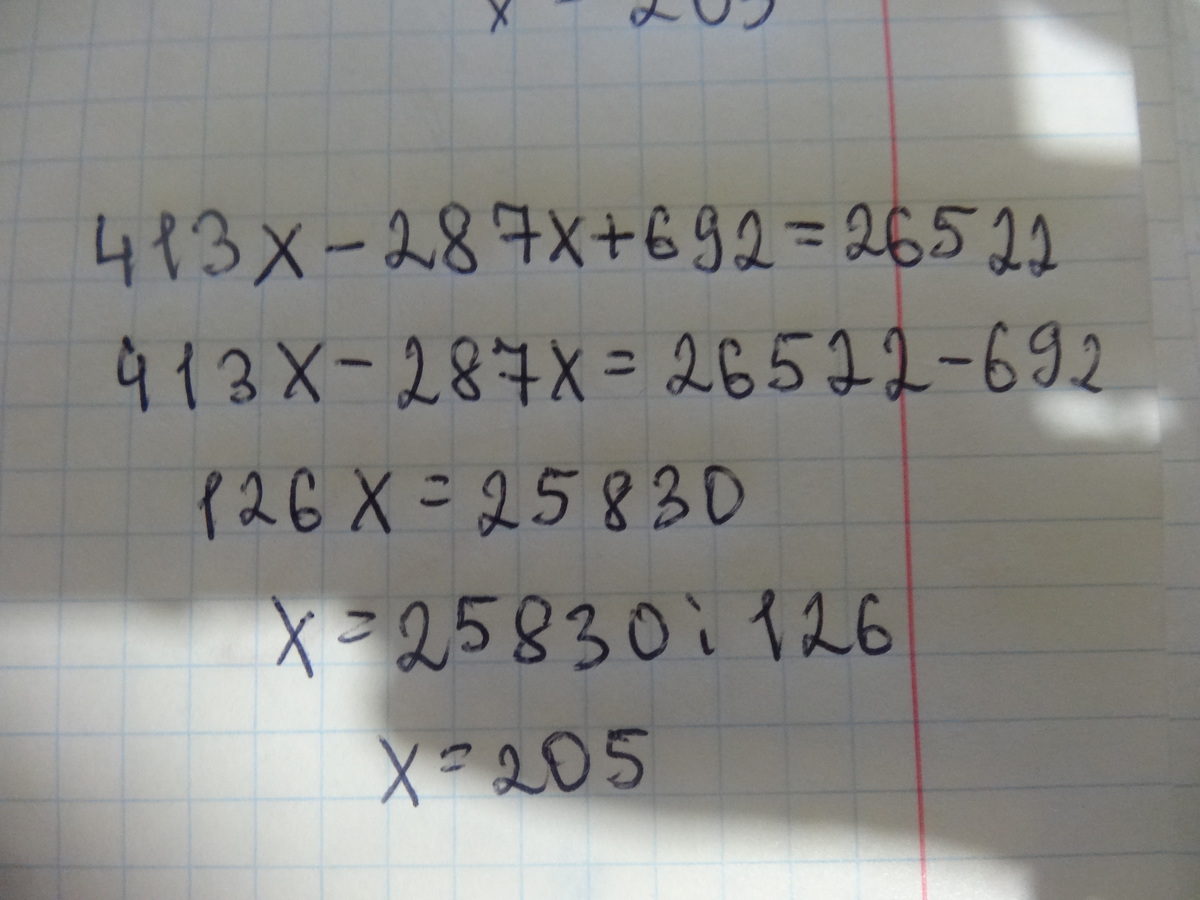 413x-287x+692=26522
413x-287x=26522-692
126x=25830
x=25830:126
x=205